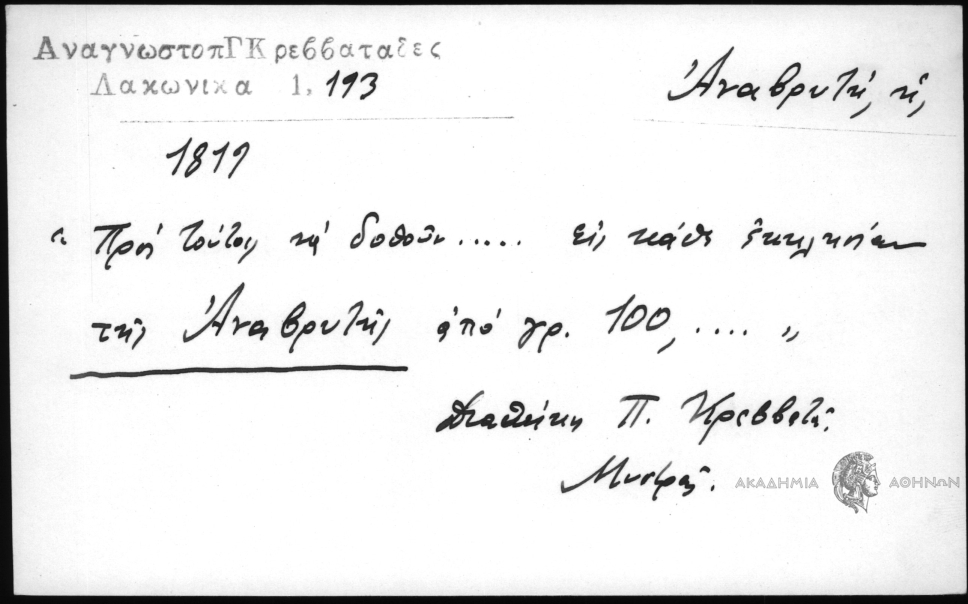 ΑναγνωστοπΓΚρεββαταδες
Λακωνικα 1, 193
Ἀναβρυτή, ἡ,
1819
" Πρὸς τούτοις νά δοθοῦν..... εἰς κάθε ἐκκλησίαν
τῆς Ἀναβρυτῆς ἀπό γρ. 100, .... "
Διαθήκη Π. Κρεββατᾶ,
Μυστρᾶς.
ΑΚΑΔΗΜΙΑ ΑΘΗΝΩΝ